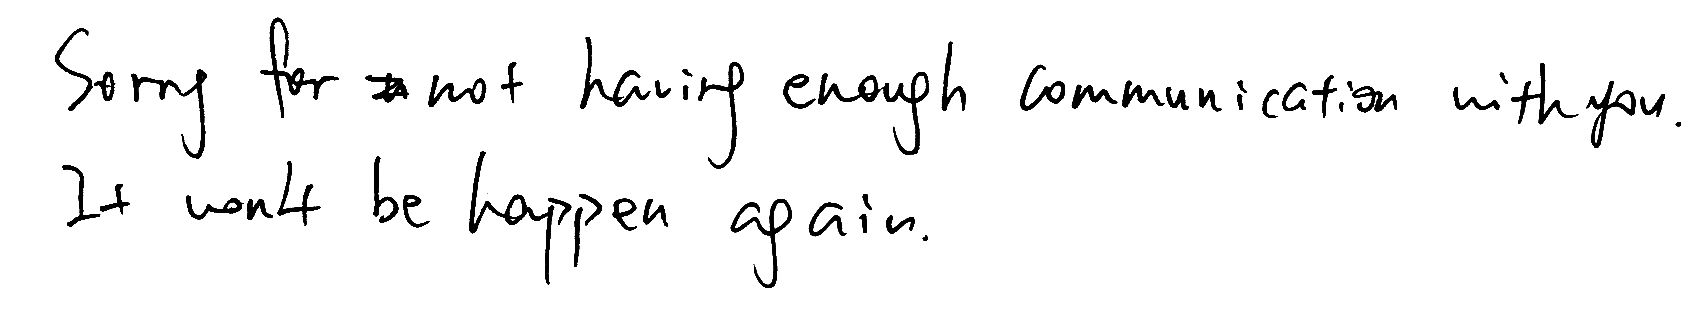 Sorry for not having enough communication with you.
It won't be happen again.